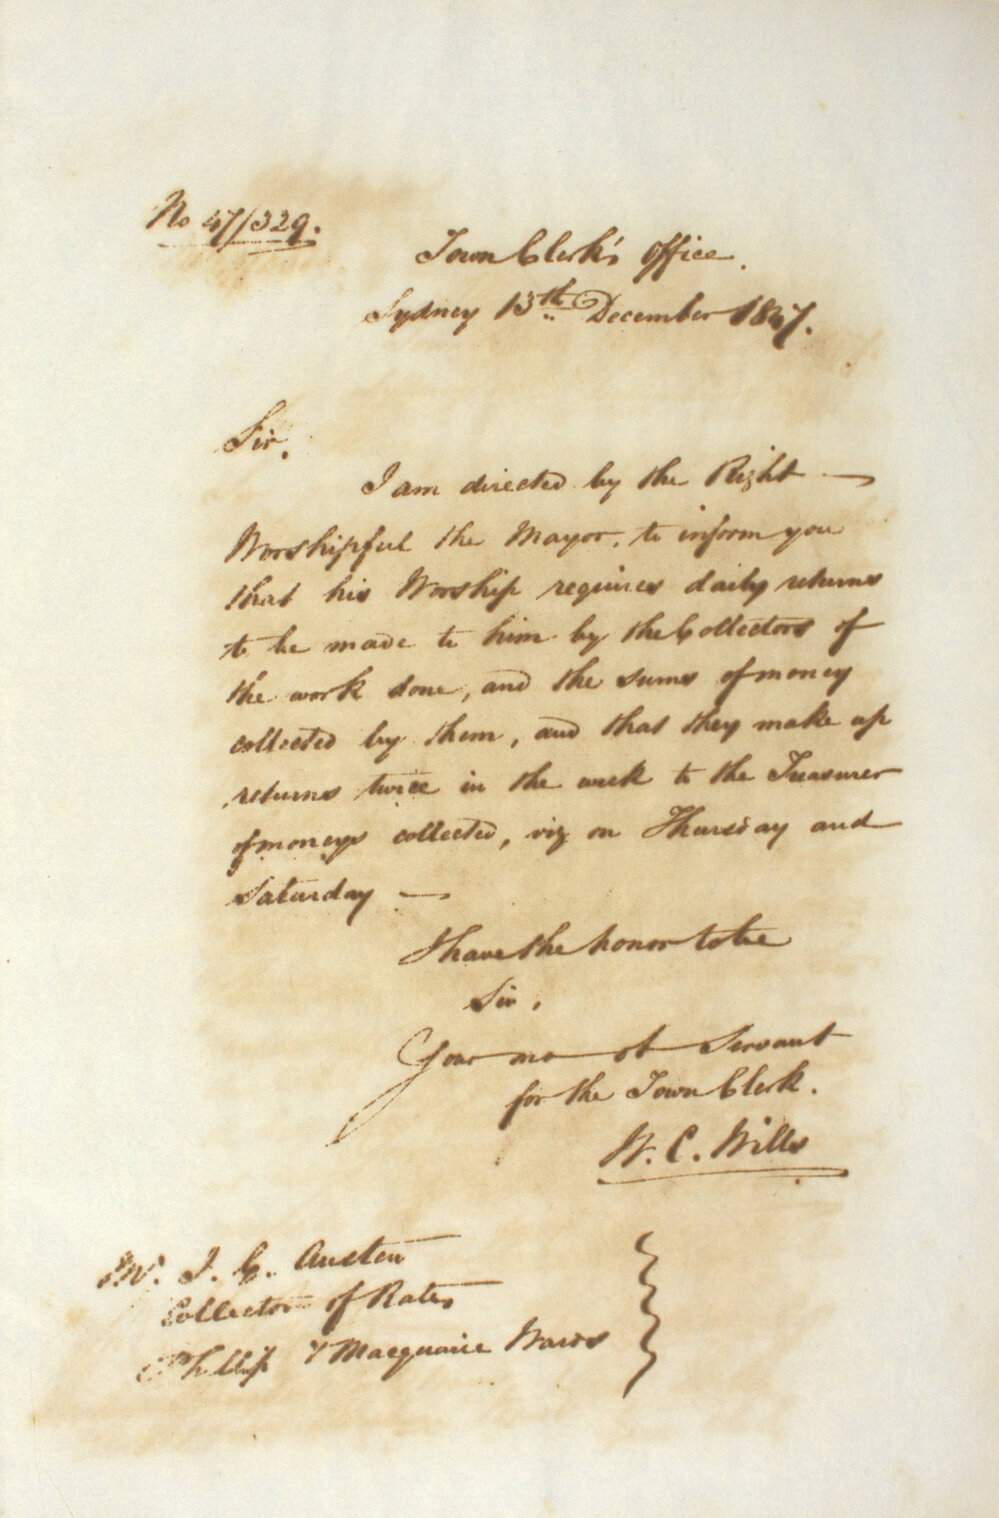 No 47/329.
Town Clerk's Office.
Sydney 13th December 1847.
Sir,
I am directed by the Right —
Worshipful the Mayor, to inform you
that his Worship requires daily returns
to be made to him by the Collectors of
the work done, and the sums of money
collected by them, and that they make up
returns twice in the week to the Treasurer
of moneys collected, viz on Thursday and
Saturday —
I have the honor to be
Sir,
Your mo ob Servant
for the Town Clerk.
W. C. Wills
Mr. J. G. Austen
Collector of Rates
Phillip & Macquarie Wards